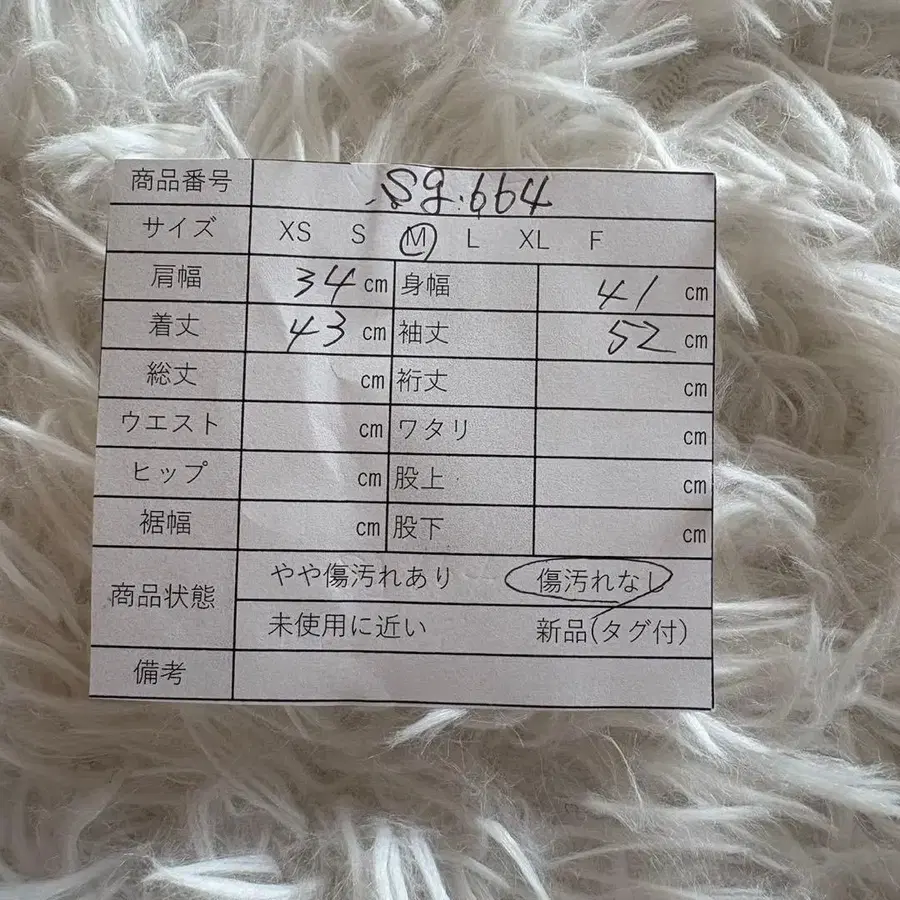 商品番号 Sg.664
サイズ XS S M L XL F
肩幅 34 cm 身幅 41 cm
着丈 43 cm 袖丈 52 cm
総丈 cm 裄丈 cm
ウエスト cm ワタリ cm
ヒップ cm 股上 cm
裾幅 cm 股下 cm
商品状態 やや傷汚れあり 傷汚れなし
未使用に近い 新品(タグ付)
備考